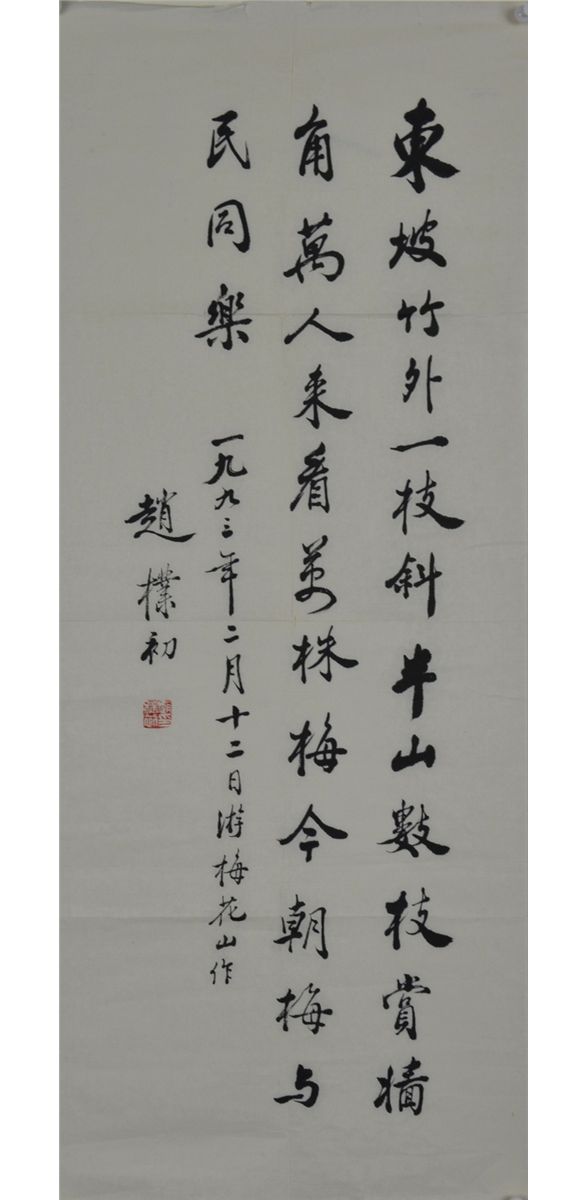 東坡竹外一枝斜半山數枝賞墻
角萬人来看萬株梅今朝梅与
民同樂
一九九三年二月十二日游梅花山作
趙樸初